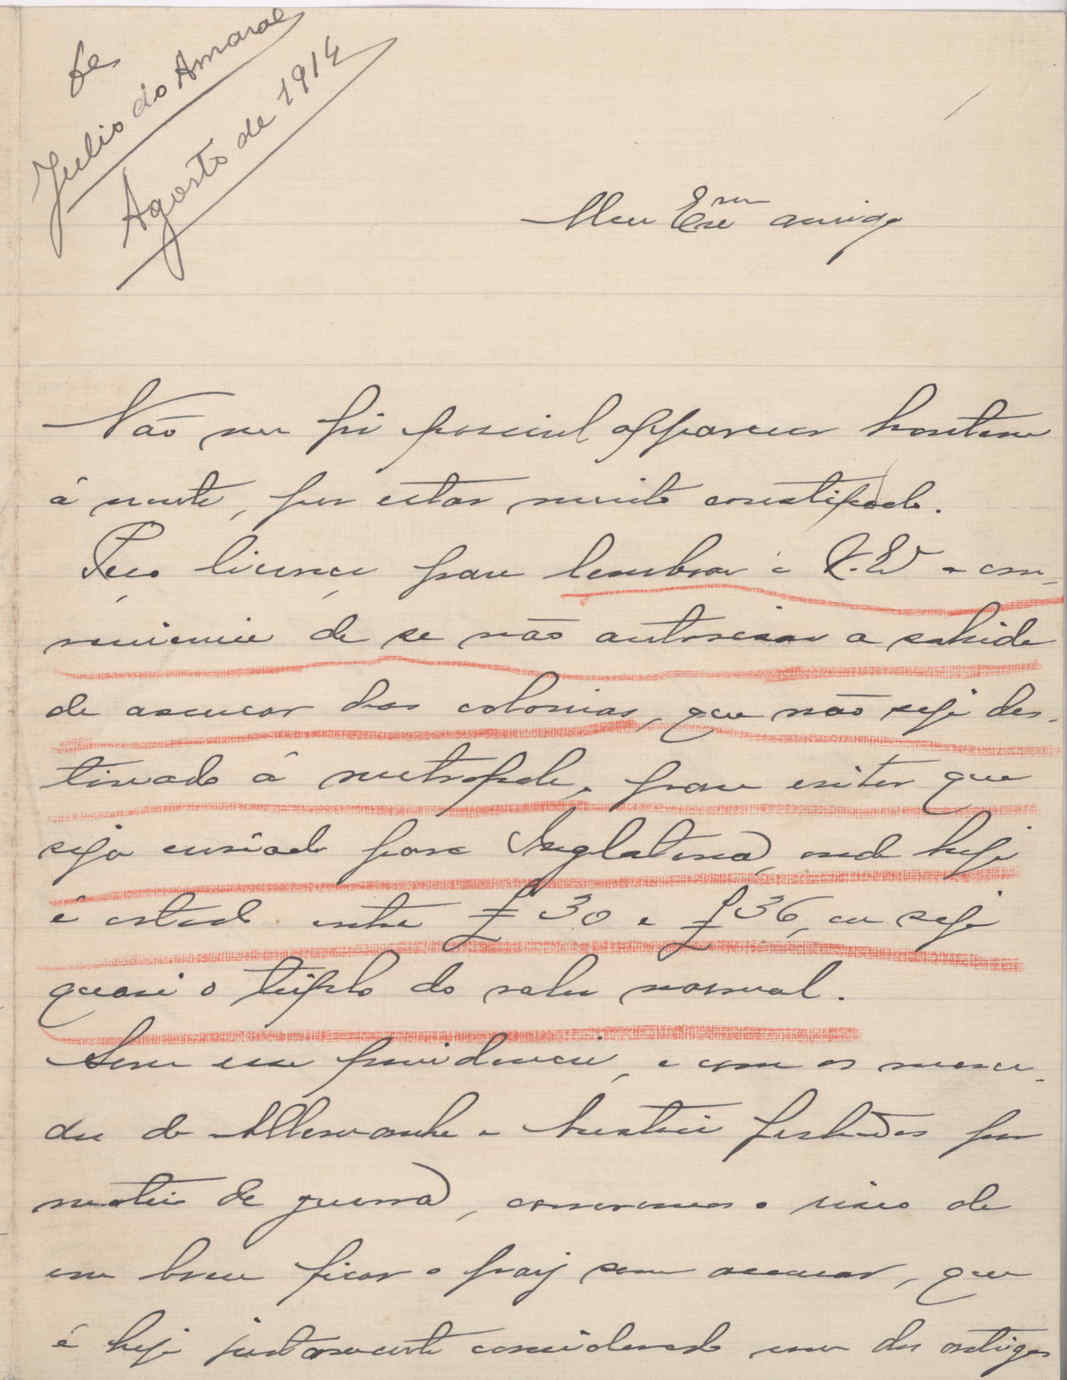 De
Julio do Amaral
Agosto de 1914
Meu Exmo amigo
Não me foi possivel apparecer hontem
á noute, por estar muito constipado.
Peço licença para lembrar a V. Ex. a con-
veniencia de se não autorisar a sahida
de assucar das colonias, que não seja des-
tinado á metropole, para evitar que
seja enviado para Inglaterra, onde hoje
é cotado entre £ 30 e £ 36, ou seja
quasi o triplo do valor normal.
Sem essa providencia, e com os merca-
dos da Allemanha e Austria fechados por
motivo de guerra, corremos o risco de
em breve ficar o paiz sem assucar, que
é hoje justamente considerado um dos artigos